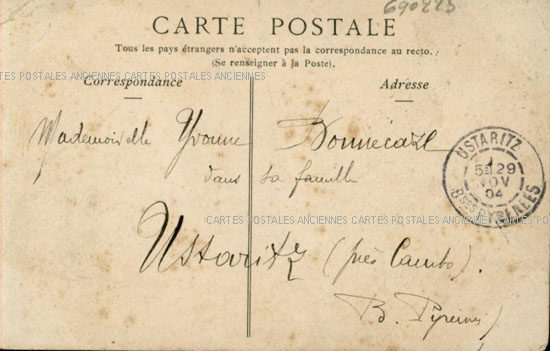 690223
CARTE POSTALE
Tous les pays étrangers n'acceptent pas la correspondance au recto.
(Se renseigner à la Poste).
CARTES POSTALES ANCIENNES CARTES POSTALES ANCIENNES
Correspondance Adresse
Mademoiselle Yvonne Bonnecaze
dans sa famille
USTARITZ
5E 29
NOV
04
BSES PYRENEES
CARTES POSTALES ANCIENNES CARTES POSTALES ANCIENNES CARTES POSTALES ANCIENNES
Ustaritz (près Cambo).
B. Pyrenees